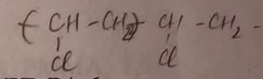 ( CH - CH₂ - CH - CH₂ -
Cl Cl